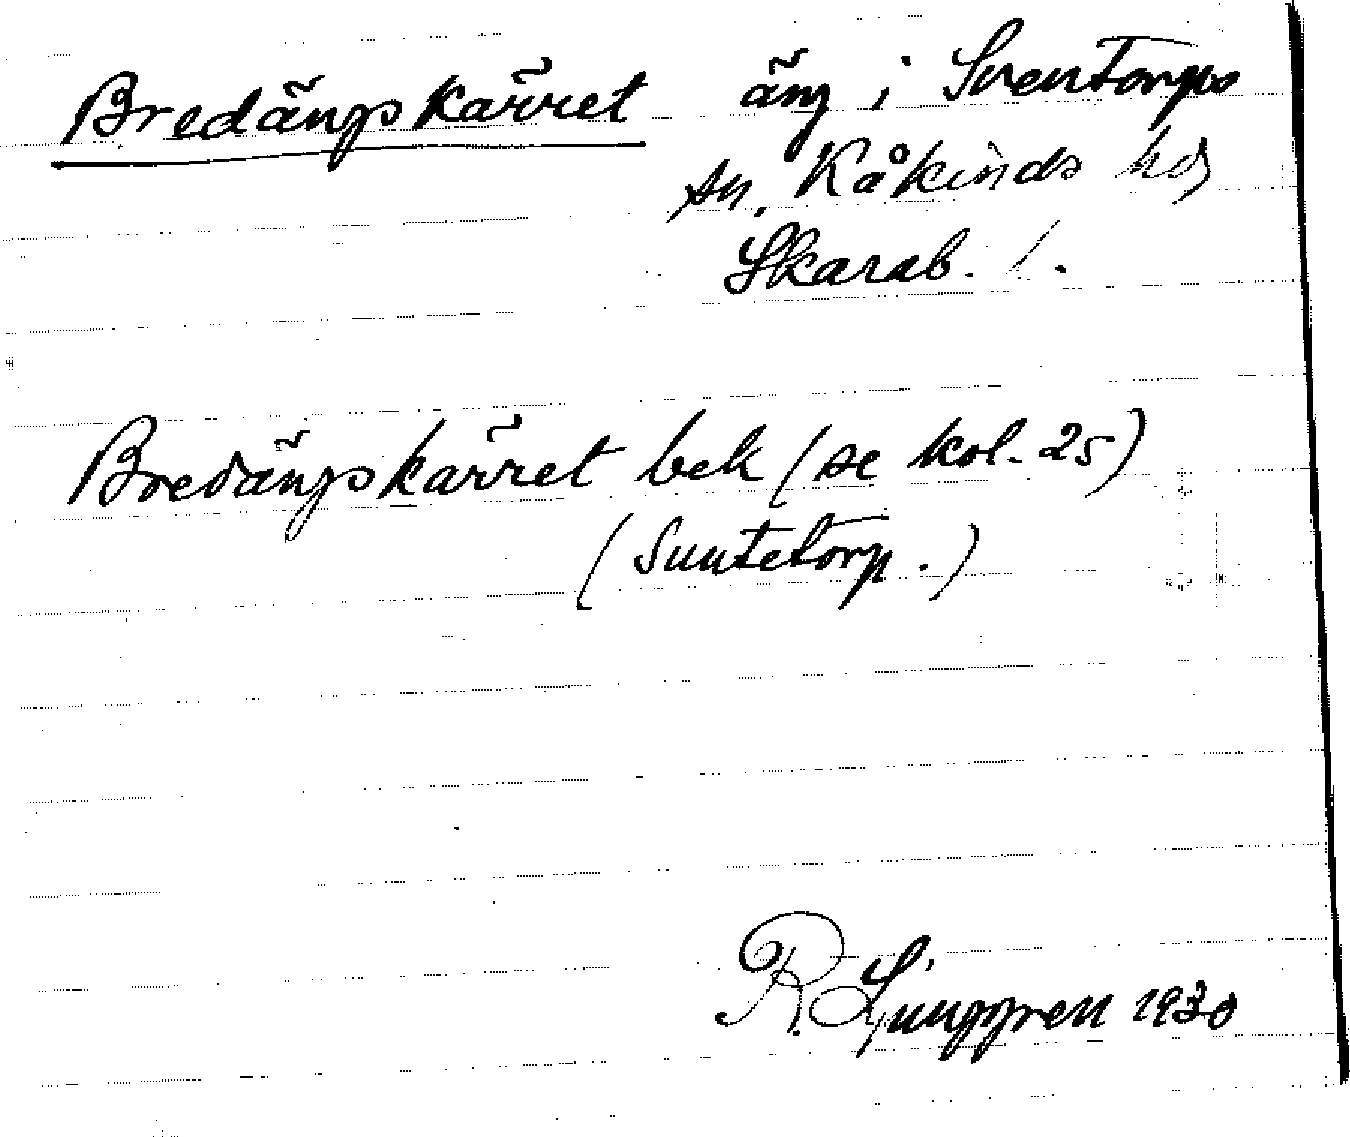 Bredängskärret äng i Sventorps
sn, Kåkinds hd
Skarab. l.
Bredängskärret bek (se kol. 25)
(Suntetorp.)
R. Ljunggren 1930